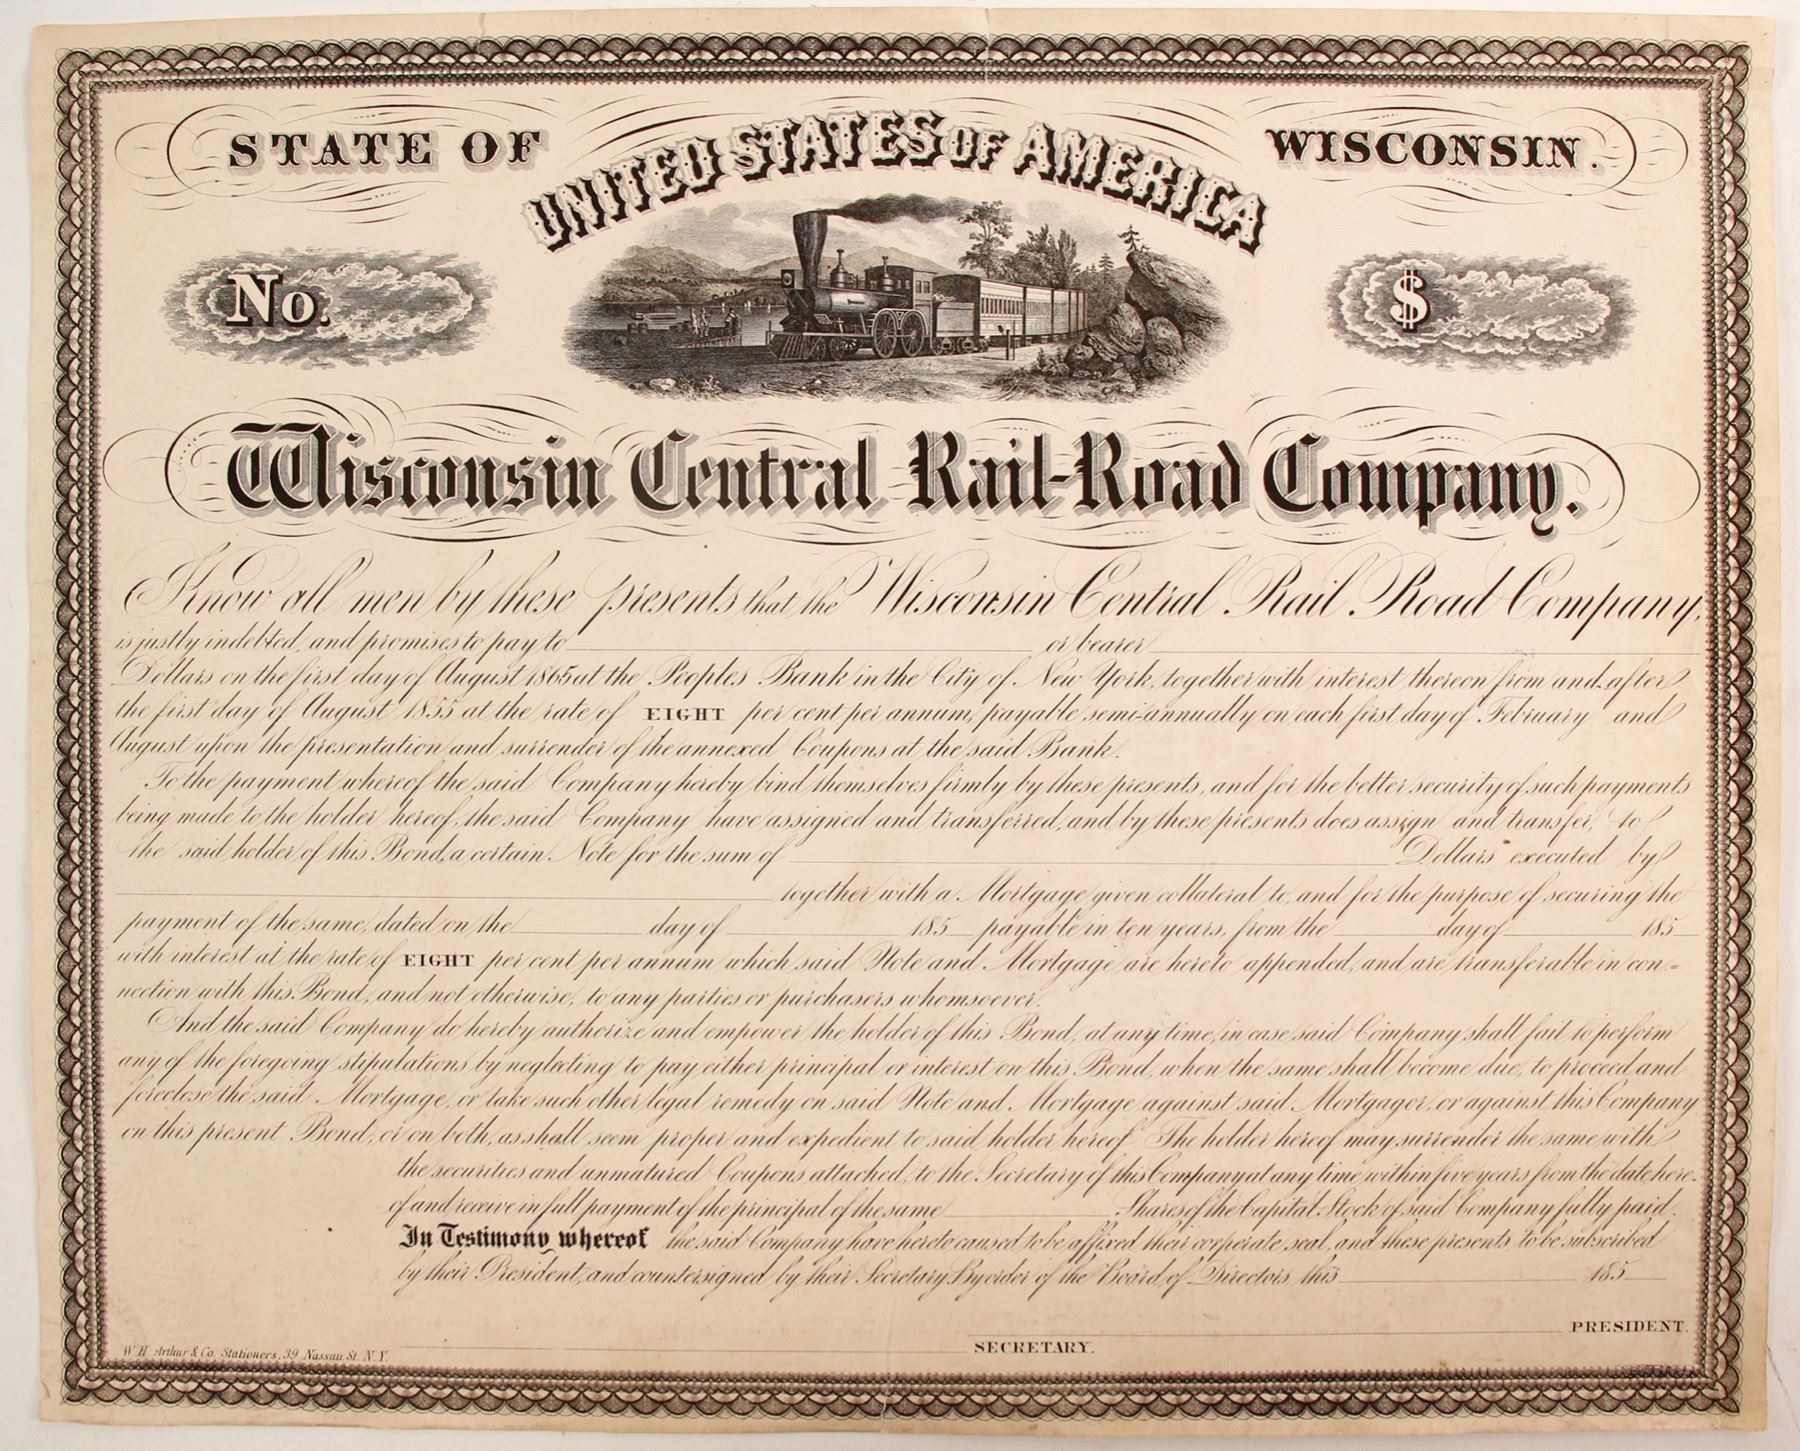 STATE OF
UNITED STATES OF AMERICA
WISCONSIN.
No.
$
Wisconsin Central Rail-Road Company.
Know all men by these presents that the Wisconsin Central Rail Road Company,
is justly indebted, and promises to pay to or bearer
Dollars on the first day of August 1865 at the Peoples Bank in the City of New York, together with interest thereon from and after
the first day of August 1855 at the rate of EIGHT per cent per annum, payable semi-annually on each first day of February and
August upon the presentation and surrender of the annexed Coupons at the said Bank.
To the payment whereof the said Company hereby bind themselves firmly by these presents, and for the better security of such payments
being made to the holder hereof, the said Company have assigned and transferred, and by these presents does assign and transfer, to
the said holder of this Bond, a certain Note for the sum of Dollars executed by
together with a Mortgage given collateral to, and for the purpose of securing the
payment of the same, dated on the day of 185 payable in ten years, from the day of 185
with interest at the rate of EIGHT per cent per annum which said Note and Mortgage are hereto appended, and are transferable in con=
nection with this Bond, and not otherwise, to any parties or purchasers whomsoever.
And the said Company do hereby authorize and empower the holder of this Bond, at any time, in case said Company shall fail to perform
any of the foregoing stipulations by neglecting to pay either principal or interest on this Bond, when the same shall become due, to proceed and
foreclose the said Mortgage, or take such other legal remedy on said Note and Mortgage against said Mortgagor, or against this Company
on this present Bond, or on both, as shall seem proper and expedient to said holder hereof. The holder hereof may surrender the same with
the securities and unmatured Coupons attached, to the Secretary of this Company at any time within five years from the date here-
of and receive in full payment of the principal of the same Shares of the Capital Stock of said Company fully paid.
In Testimony whereof the said Company have hereto caused to be affixed their corporate seal, and these presents to be subscribed
by their President, and countersigned by their Secretary, By order of the Board of Directors this 185
PRESIDENT.
SECRETARY.
W. H. Arthur & Co. Stationers, 39 Nassau St. N.Y.